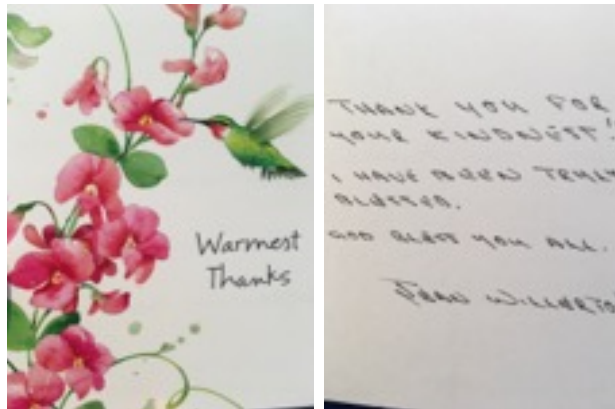 Warmest
Thanks
THANK YOU FOR
YOUR KINDNESS!
I HAVE BEEN TRULY
BLESSED.
GOD BLESS YOU ALL.
JEAN